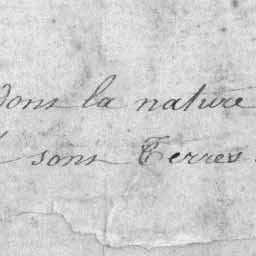 dont la nature
sont Terres